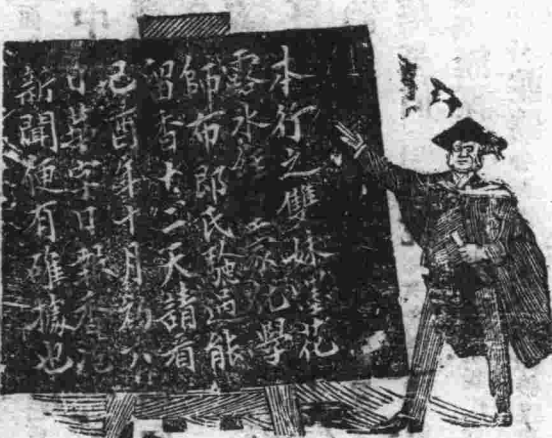 本行之雙妹嘜花
露水經蒙化學
師布郎氏驗過能
留香十二天請看
己酉年十月初
日華字日報香港
新聞便有確據也